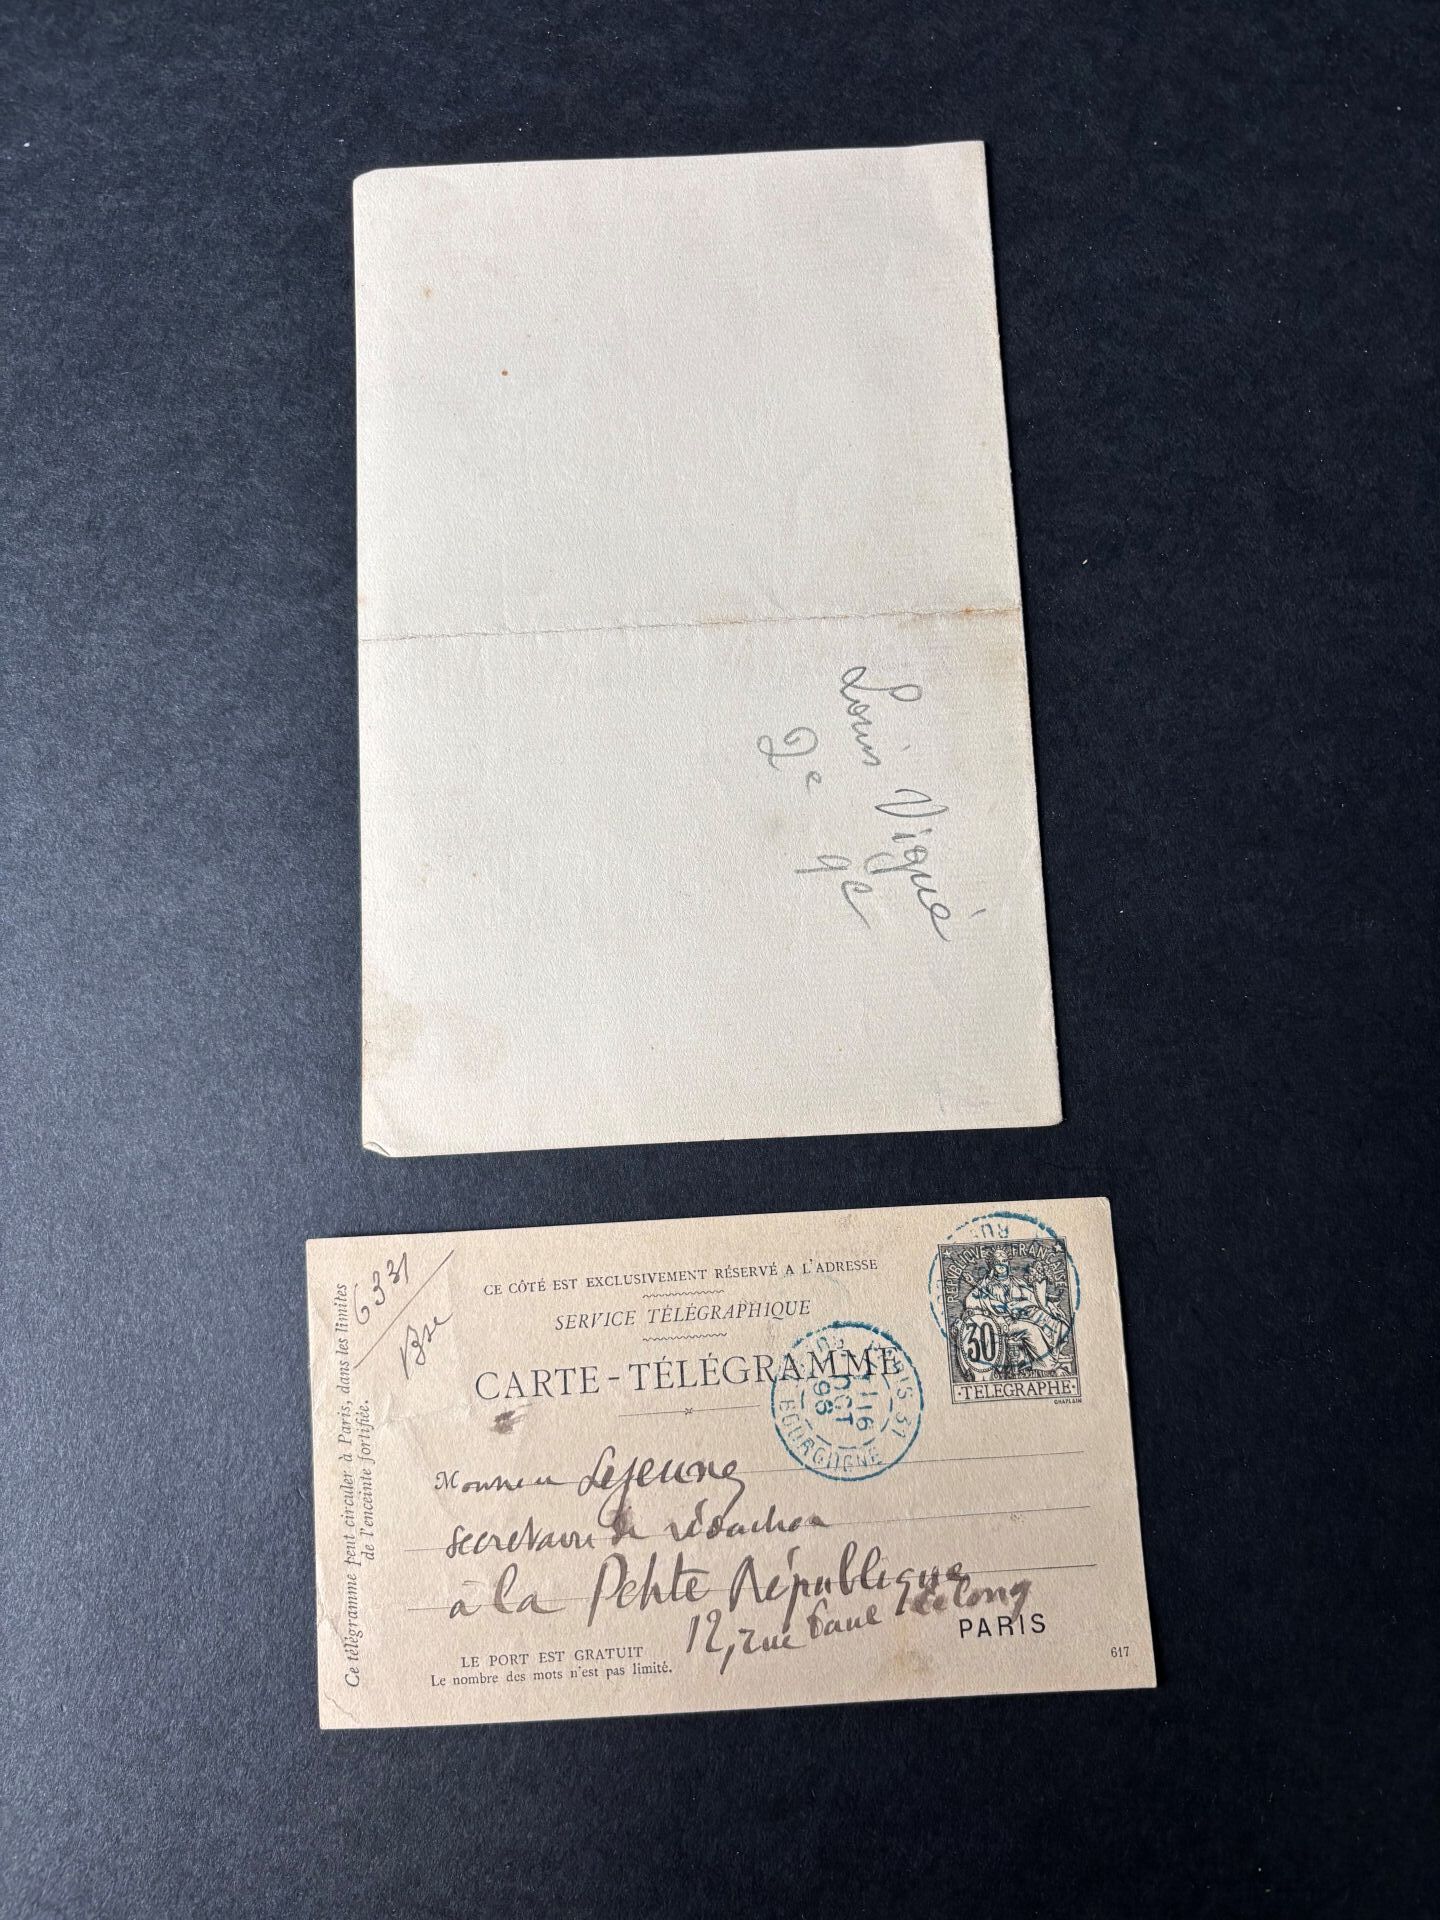 Louis Vigué
2e 9e
Ce télégramme peut circuler à Paris, dans les limites
de l'enceinte fortifiée.
6331
CE CÔTÉ EST EXCLUSIVEMENT RÉSERVÉ A L'ADRESSE
SERVICE TÉLÉGRAPHIQUE
CARTE-TÉLÉGRAMME
RÉPUBLIQUE FRANÇAISE
30
TÉLÉGRAPHE
CHAPLAIN
PARIS 31
OCT
98
BOURGOGNE
Monsieur Lejeune
secrétaire de rédaction
à la Petite République
12, rue Paul Lelong
PARIS
LE PORT EST GRATUIT
Le nombre des mots n'est pas limité.
617